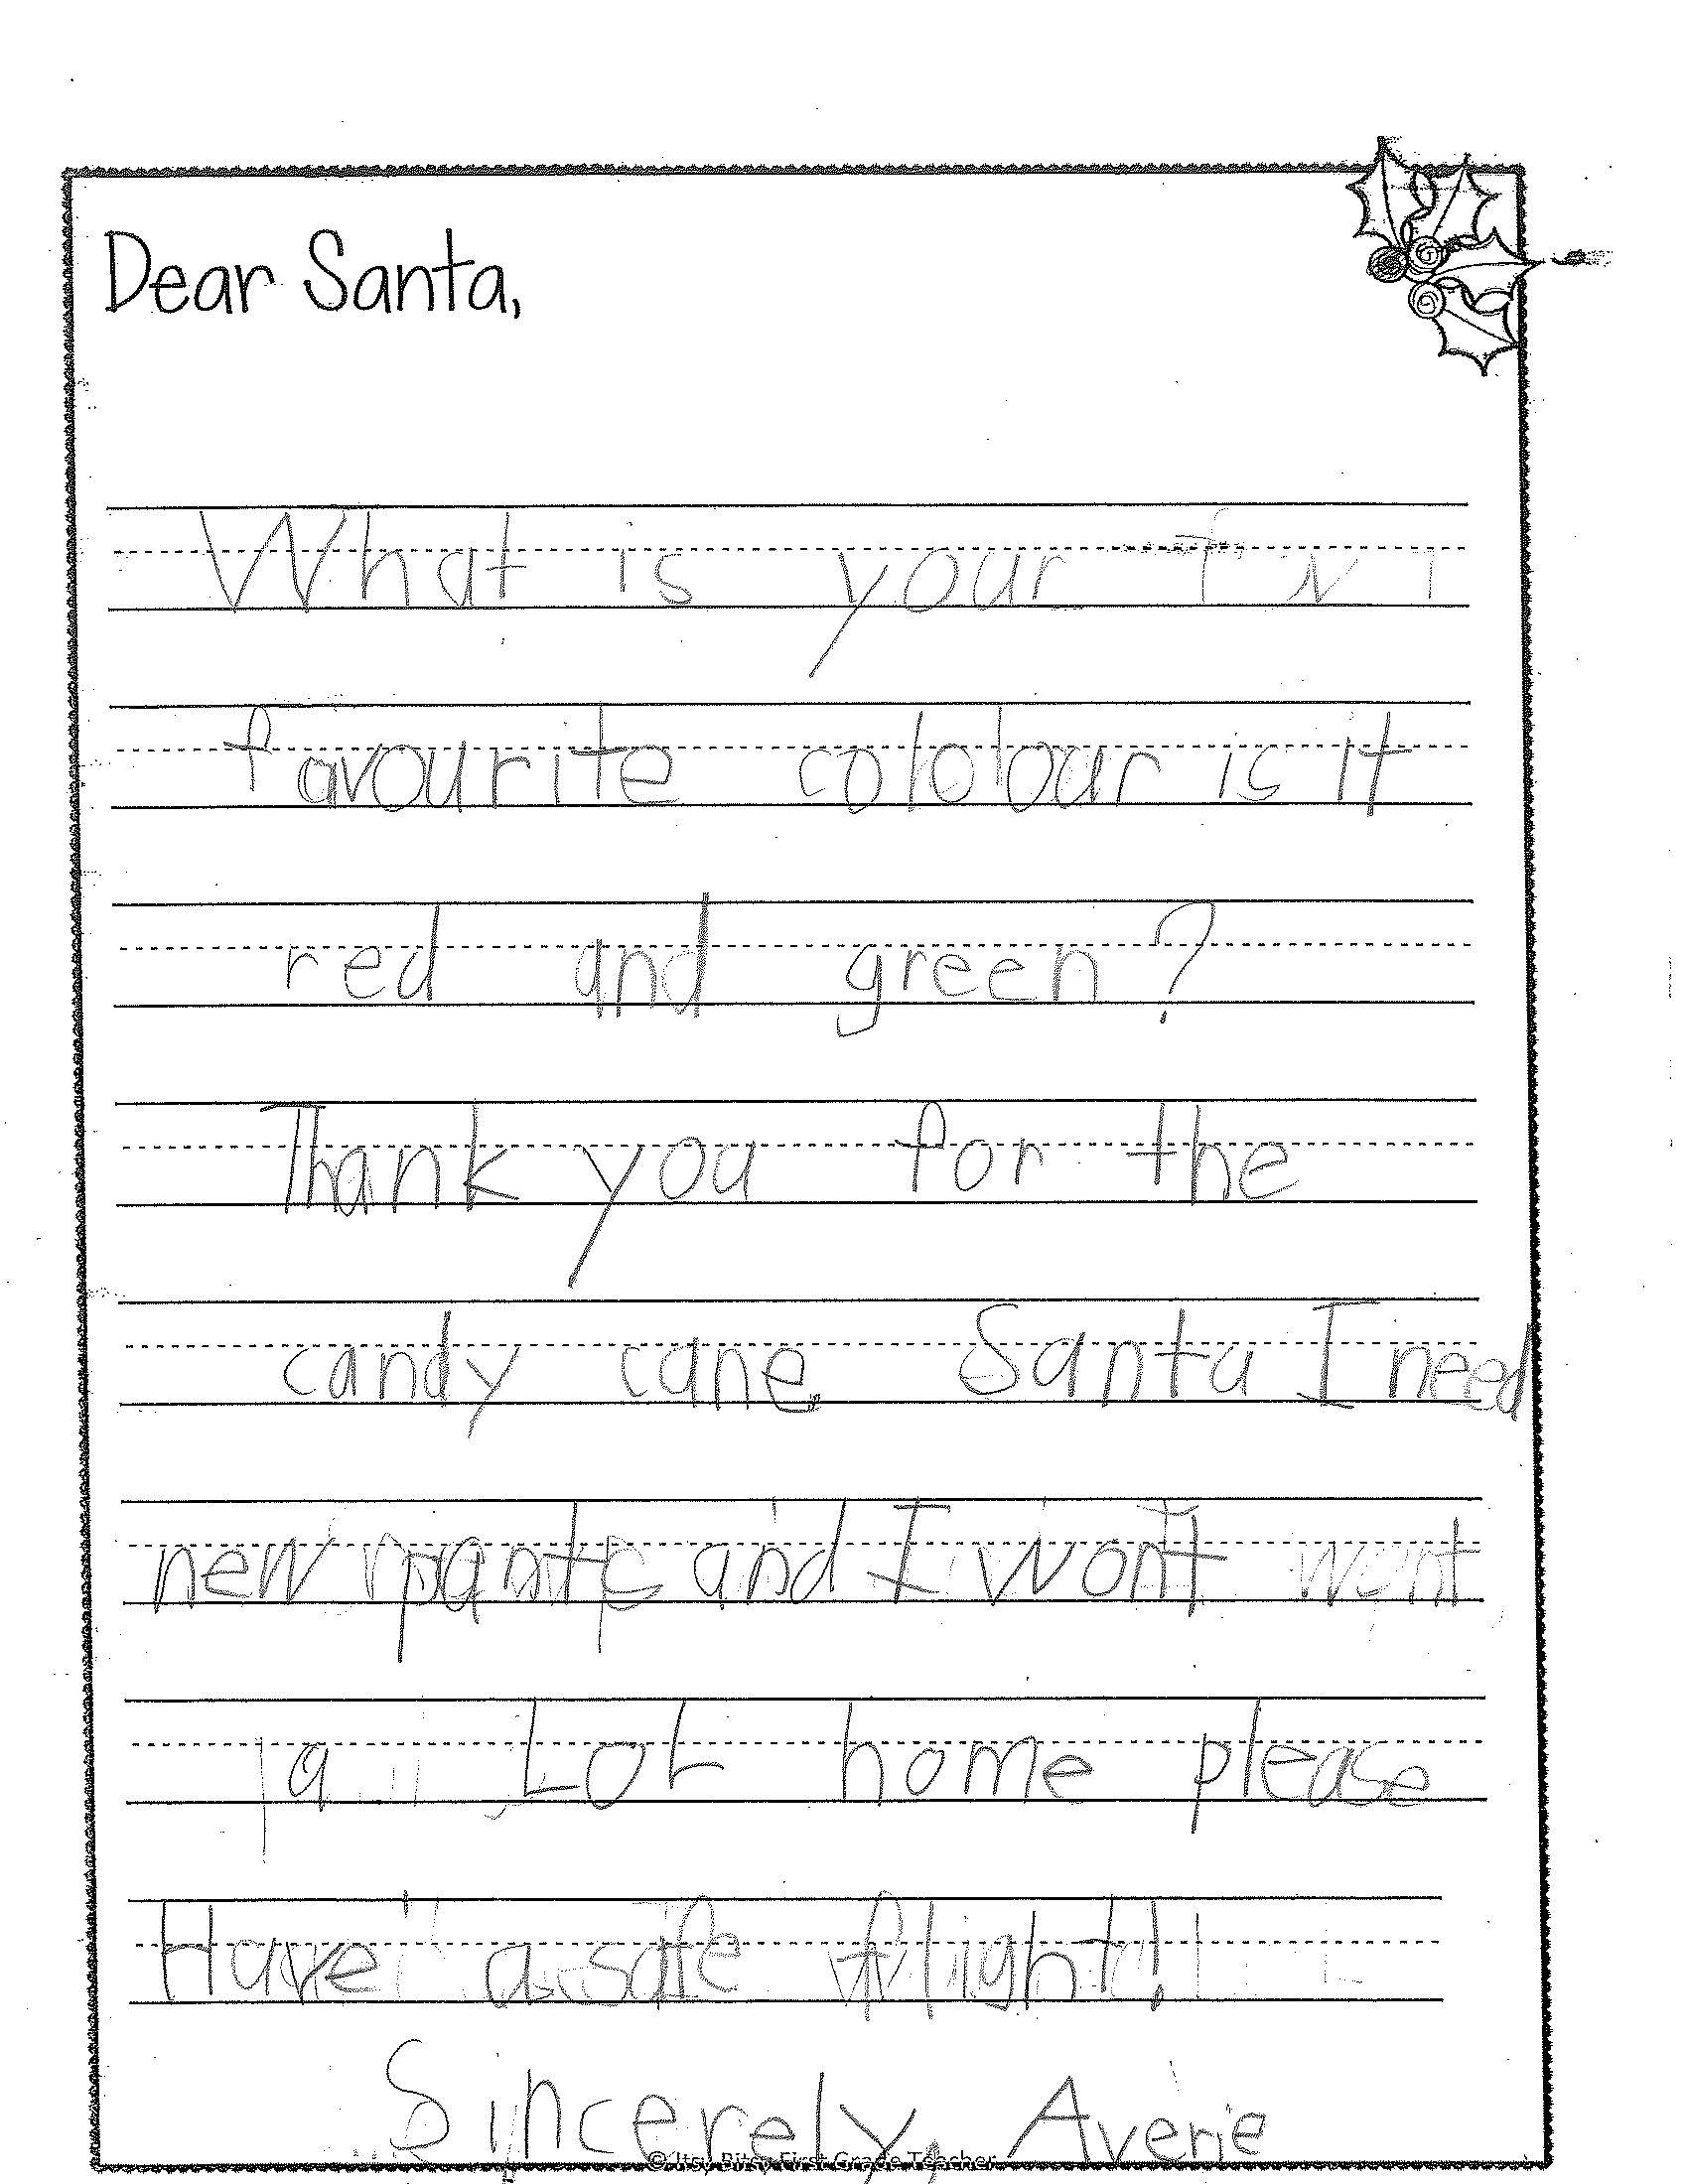 Dear Santa,
What is your
favourite colour is it
red and green?
Thank you for the
candy cane. Santa I need
new pants and I wont
a LOL home please
Have a safe flight!
Sincerely, Averie
© Itsy Bitsy First Grade Teacher